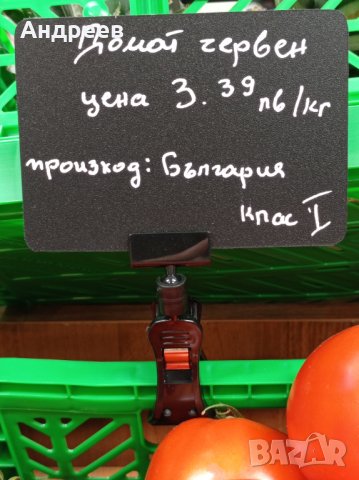 Андреев
Домат червен
цена 3.39 лв/кг
произход: България
Клас I
BAZAR
bg